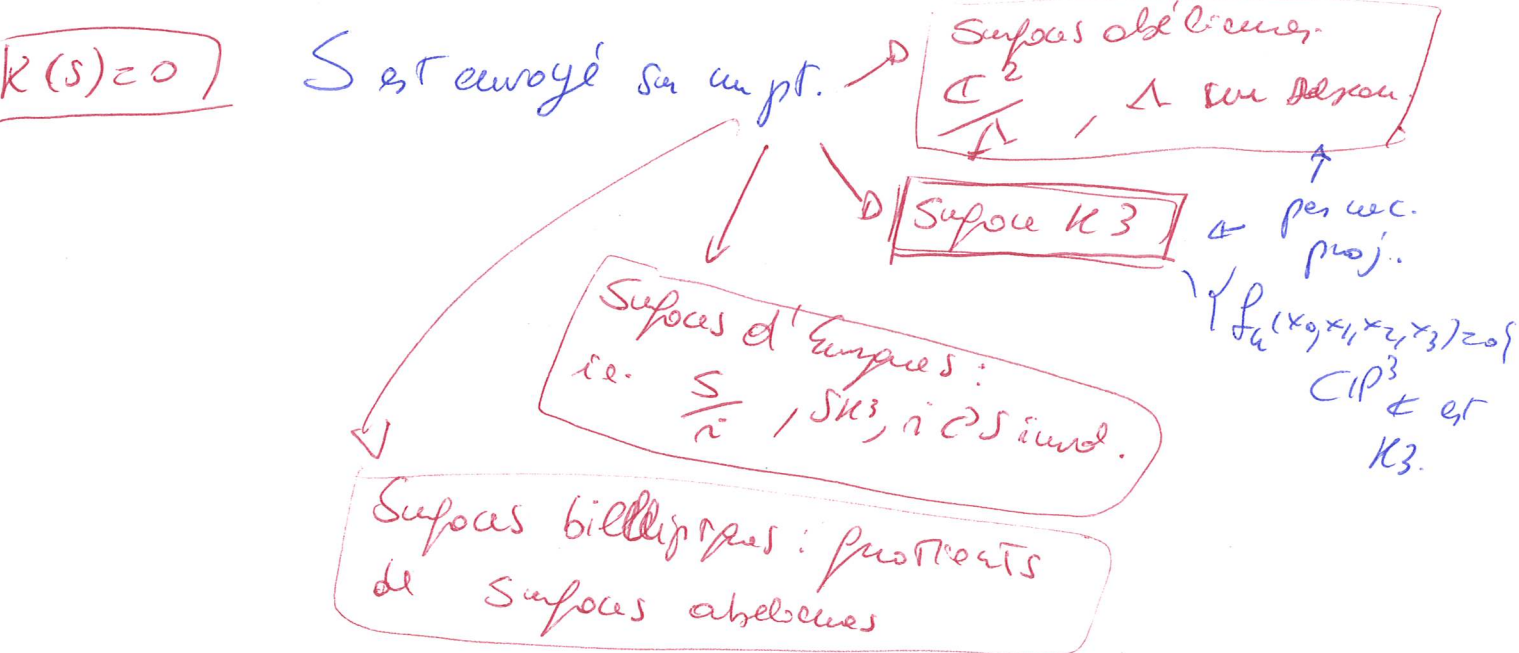 K(S)=0
S est envoyé sur un pt.
Surfaces abéliennes.
C²/Λ, Λ un réseau.
Surface K3
pas nec.
proj.
{f₄(x₀,x₁,x₂,x₃)=0}
⊂ P³ ← est
K3.
Surfaces d'Enriques :
ie. S/i, S K3, i ⊃ S invol.
Surfaces bielliptiques : quotients
de surfaces abéliennes